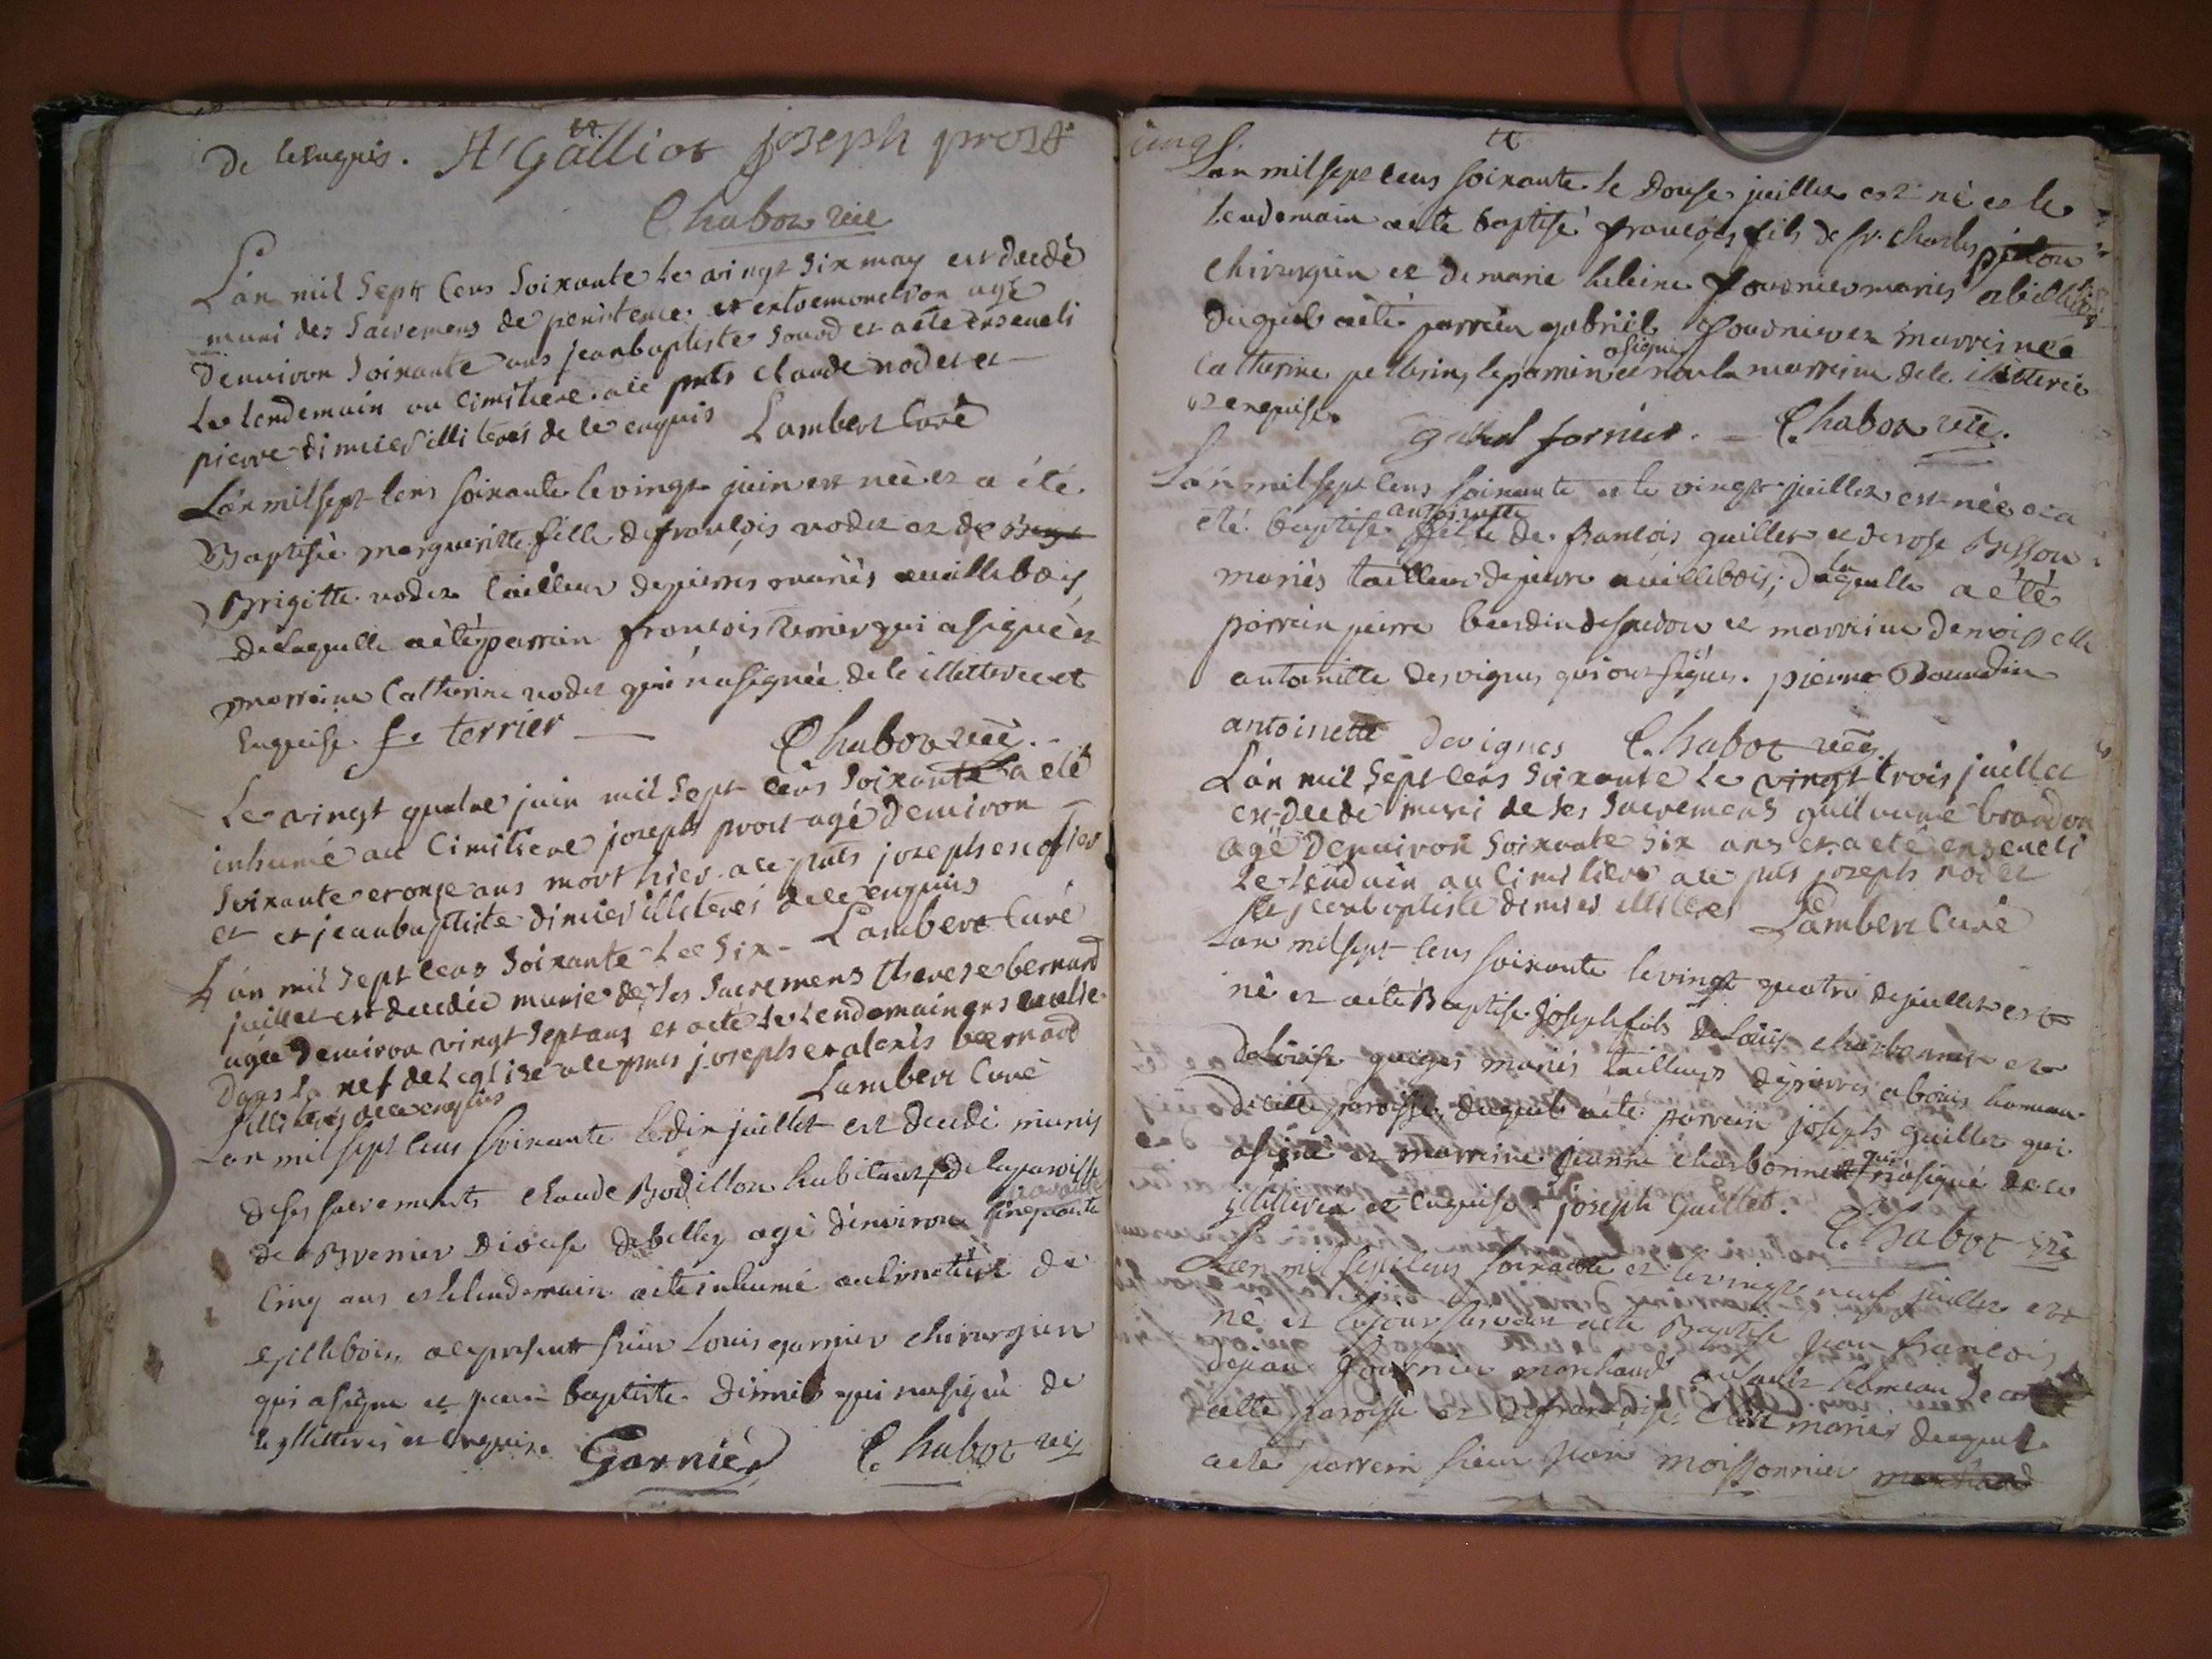 de le enquis. A Galliot joseph prost
Chabot vic
L'an mil Sept Cens Soixante le vingt Six may est decedé
muni des Sacremens de penitence et extremonction agé
denviron Soixante ans jean baptiste Sonod et a ete enseveli
le lendemain au Cimitiere ace pnts Claude nodet et
pierre dimier illiterés de le enquis Lambert Curé
L'an mil sept Cens soixante le vingt juin est née et a été
Baptisée margueritte fille de françois nodet et de
Brigitte nodet tailleur de pierres mariés a villebois
de laquelle a été parrain françois terrier qui a signé et
marraine Catherine nodet qui n'a signée de le illetterée et
Enquise. f. terrier Chabot vic.
Le vingt quatre juin mil Sept Cens Soixante a eté
inhumé au Cimitiere joseph prost agé denviron
Soixante et onze ans mort hier ace pnts joseph
et et jean baptiste dimier illiterés de le enquis
Lambert Curé
L'an mil Sept Cens Soixante Le Six
juillet est decedée munie de Ses Sacremens therese bernard
agée denviron vingt Sept ans et a eté Le Lendemain ensevelie
Dans La nef de L'eglise ace pnts joseph et alexis bernard
illiterés de le enquis Lambert Curé
L'an mil sept Cens soixante le dix juillet est decedé munis
de ses sacrements Claude Bodillon habitant de la paroisse
de Brenier Diocese de belley agé d'environ cinquante
Cinq ans et le lendemain a eté inhumé au Cimetière de
Villebois, ace present sieur Louis garnier chirurgien
qui a signé et jean baptiste dimier qui n'a signé de
le illitterés et enquis. Garnier Chabot vic
cinq
L'an mil sept cens soixante le Douse juillet est né et le
lendemain a eté baptisé françois fils de sr. charles
chirurgien et de marie heleine fournier mariés a villebois
duquel a été parrain gabriel fournier et marrinee
Catherine pellerin, le parrain a signé et non la marraine de le illetterée
et enquise. gabriel fornier. Chabot vic.
L'an mil sept cens soixante et le vingt juillet est née et a
été baptisé antoinette fille de françois guillet et de rose Besson
mariés tailleur de pierre a villebois; de laquelle a été
parrain pierre bourdin de et marraine demoiselle
antoinette desvignes qui ont signés. pierre Bourdin
antoinette devignes Chabot vic.
L'an mil Sept Cens Soixante Le vingt trois juillet
est decedé muni de Ses Sacremens guilaume brandon
agé denviron Soixante Six ans et a eté enseveli
Le lendemain au Cimitiere ace pnts joseph nodet
et jean baptiste dimier illiteres Lambert Curé
L'an mil sept cens soixante le vingt quatre de juillet est
né et a été Baptisé joseph fils de Louis charbonnet et
de Louise guiges mariés tailleurs de pierres a bouis hameau
de cette paroisse, duquel a eté parrain joseph guillet qui
a signé et marraine jeanne charbonnet qui n'a signé de le
illitterée et enquise. joseph Guillet. Chabot vic
L'an mil sept cens soixante et le vingt neuf juillet est
né et le jour suivant a eté Baptisé jean françois
de jean fournier marchand au hameau de
cette paroisse et de françoise mariés duquel
a eté parrein sieur jean moissonnier marchand